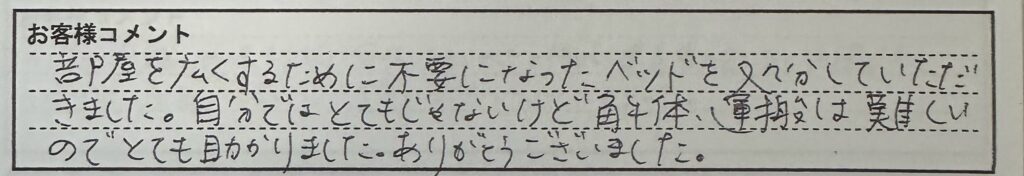 お客様コメント
部屋を広くするために不要になったベッドを処分していただ
きました。自分ではとてもじゃないけど解体、運搬は難しい
のでとても助かりました。ありがとうございました。